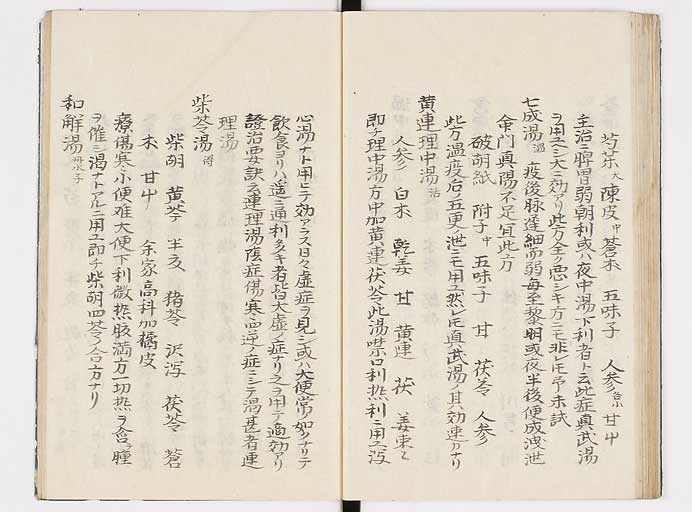 芍薬大 陳皮中 蒼朮 五味子 人参各小 甘中
主治脾胃弱朝利或ハ夜中瀉下利者ト云此症真武湯
ヲ用ユ大ニ効アリ此方全ク悪シキ方ニモ非レ𪜈予未試
七成湯温 疫後脉遅細而弱毎至黎明或夜半後便成洩泄
命門真陽不足宜此方
破胡紙 附子中 五味子 甘 茯苓 人参
此方温疫后ノ五更ノ泄ニモ用ユ然レ𪜈真武湯ノ其効速ナリ
黄連理中湯活
人参 白朮 乾姜 甘 黄連 茯 姜棗ヒ
即チ理中湯方中加黄連茯苓此湯噤口利熱利ニ用ユ瀉
心湯ナト用ヒテ効アラス日々虚症ヲ見シ或ハ大便常ノ如クナリテ
飲食ヨリハ遥ニ通利多キ者皆大虚ノ症ナリ之ヲ用テ適効アリ
證治要訣云連理湯陰症傷寒四逆ノ症ニシテ渇甚者連
理湯
柴苓湯得
柴胡 黄芩 半夏 猪苓 沢瀉 茯苓 蒼
朮 甘中 余家高科加橘皮
療傷寒小便难大便下利微热胺満方一切热ヲ含腫
ヲ催ニ渇ナトアルニ用ユ即チ柴胡四苓ノ合方ナリ
和解湯丹水子